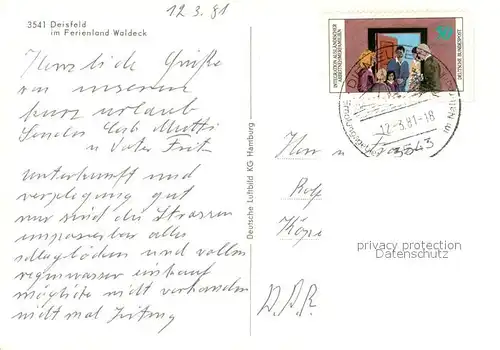 12.3.81
3541 Deisfeld
im Ferienland Waldeck
Herzliche Grüße
an unserem
kurz urlaub
Mutti
u Vater Fritz
Unterkunft und
verplegung gut
nur sind die Strassen
alles
und vollem
regenwasser einkauf
mögliche nicht vorhanden
nicht mal Zeitung
Deutsche Luftbild KG Hamburg
INTEGRATION AUSLÄNDISCHER
ARBEITNEHMERFAMILIEN
50
DEUTSCHE BUNDESPOST
12-3.81-18
3543
Herr u
Rolf
Köpe
D.D.R.
privacy protection
Datenschutz